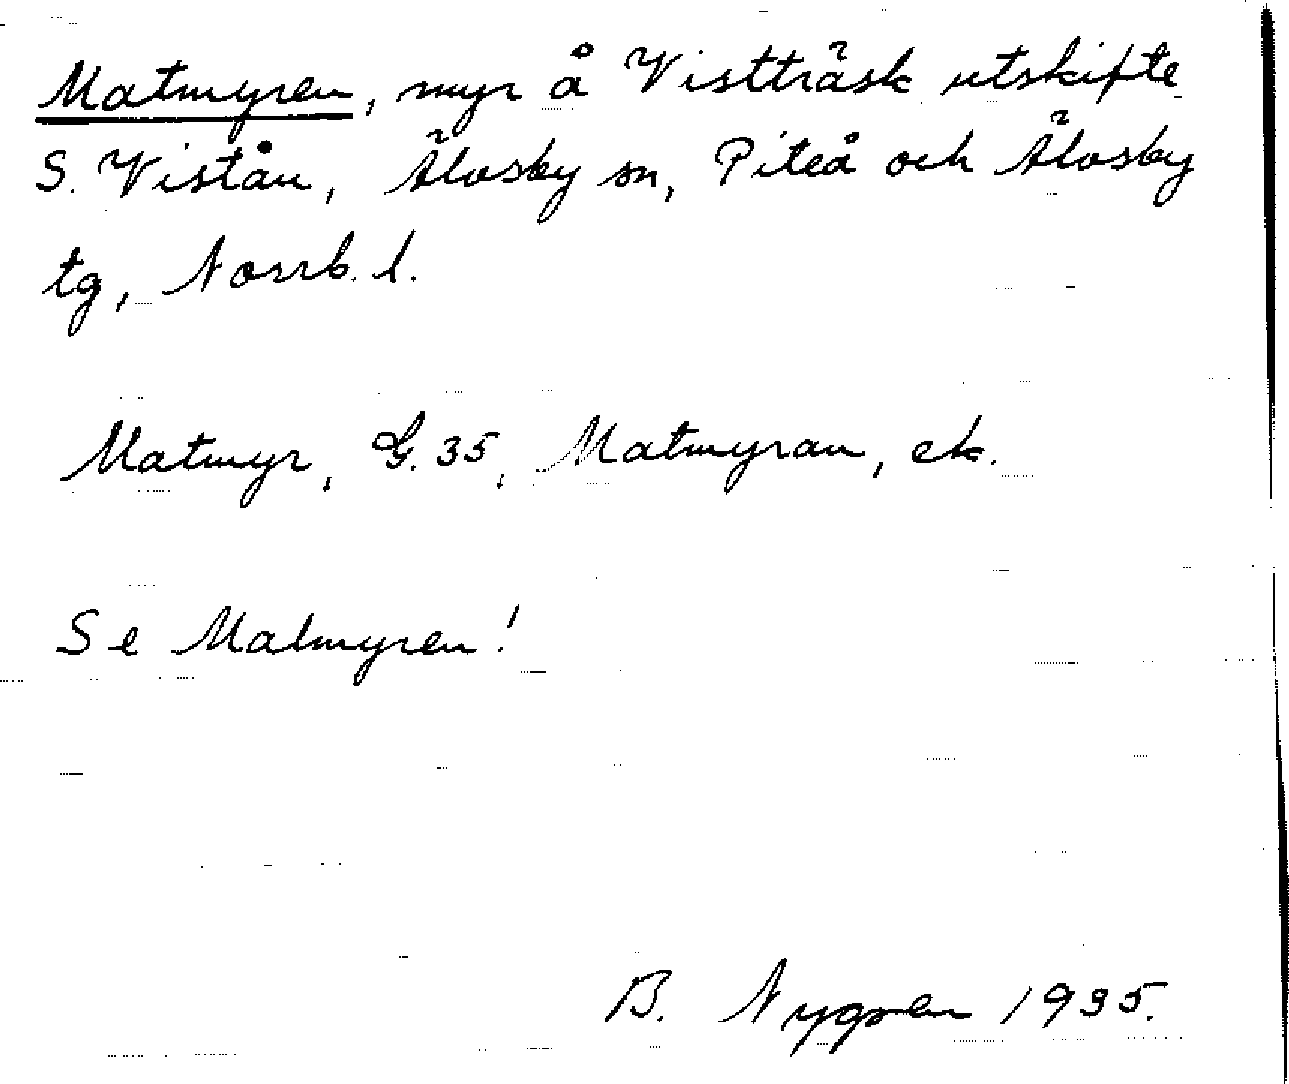 Matmyren, myr å Vistträsk utskifte
S. Viståu, Älvsby sn, Piteå och Älvsby
tg, Norrb. l.
Matmyr, G. 35, Matmyran, ek.
Se Malmyren!
B. Nygren 1935.